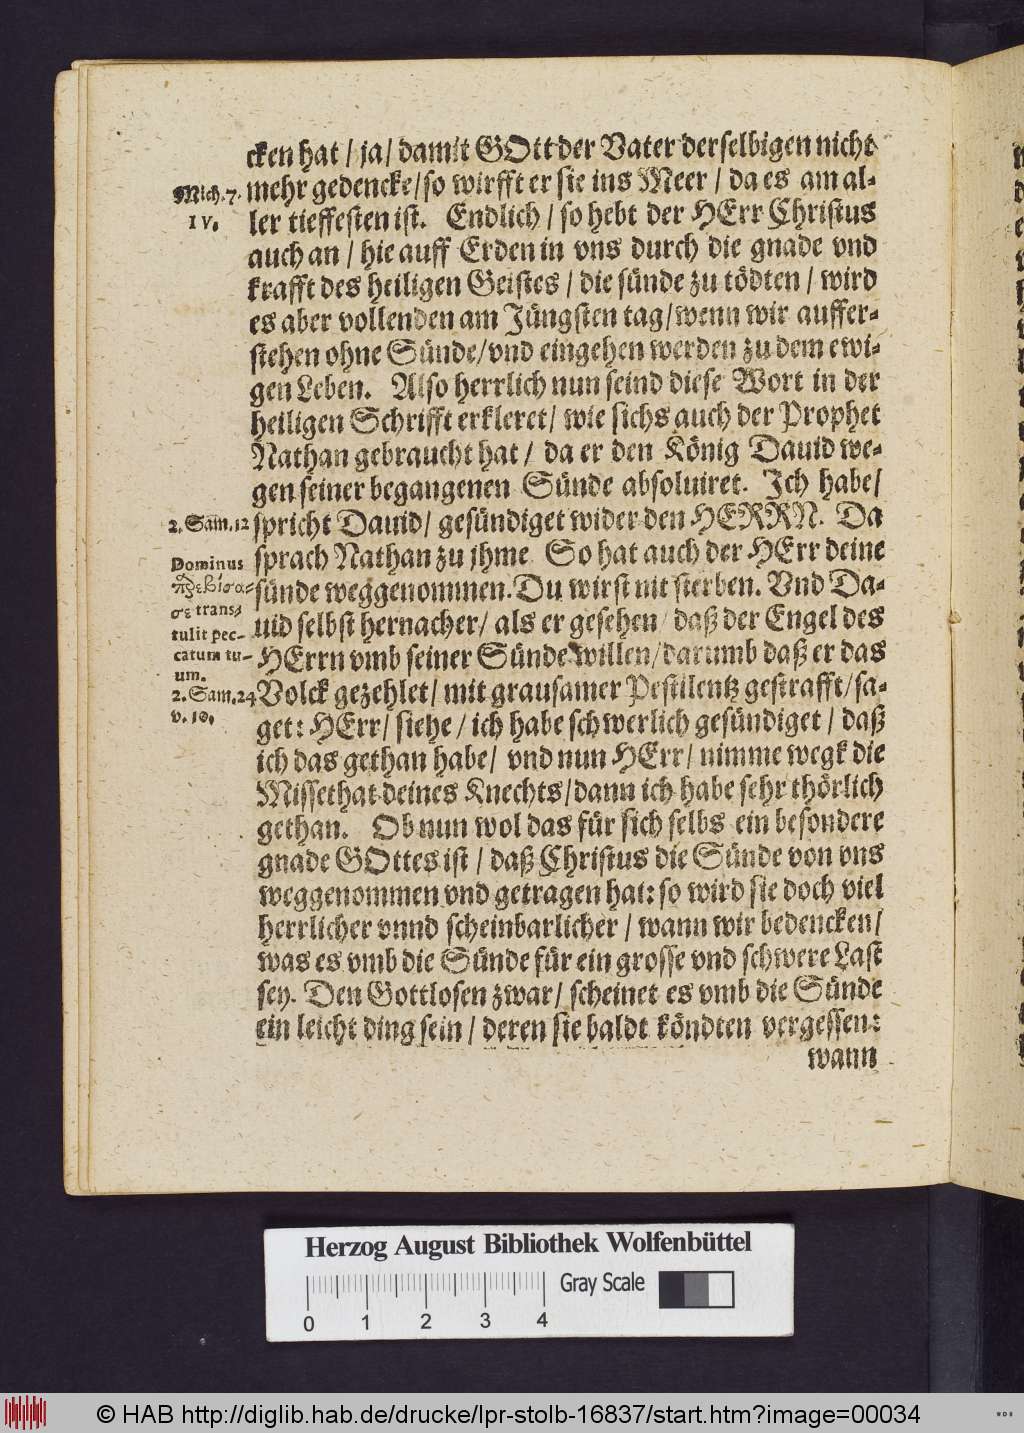 cken hat / ja / damit GOtt der Vater derselbigen nicht
Mich. 7. mehr gedencke / so wirfft er sie ins Meer / da es am al-
IV. ler tieffesten ist. Endlich / so hebt der HErr Christus
auch an / hie auff Erden in vns durch die gnade vnd
krafft des heiligen Geistes / die sünde zu tödten / wird
es aber vollenden am Jüngsten tag / wenn wir auffer-
stehen ohne Sünde / vnd eingehen werden zu dem ewi-
gen Leben. Also herrlich nun seind diese Wort in der
heiligen Schrifft erkleret / wie sichs auch der Prophet
Nathan gebraucht hat / da er den König Dauid we-
gen seiner begangenen Sünde absoluiret. Ich habe /
2. Sam. 12 spricht Dauid / gesündiget wider den HERRN. Da
Dominus sprach Nathan zu jhme So hat auch der HErr deine
sünde weggenommen. Du wirst nit sterben. Vnd Da-
σε trans- uid selbst hernacher / als er gesehen / daß der Engel des
tulit pec-
catum tu- HErrn vmb seiner Sünde willen / darumb daß er das
um.
2. Sam. 24 Volck gezehlet / mit grausamer Pestilentz gestrafft / sa-
v. 10. get: HErr / siehe / ich habe schwerlich gesündiget / daß
ich das gethan habe / vnd nun HErr / nimme wegk die
Missethat deines Knechts / dann ich habe sehr thörlich
gethan. Ob nun wol das für sich selbs ein besondere
gnade GOttes ist / daß Christus die Sünde von vns
weggenommen vnd getragen hat: so wird sie doch viel
herrlicher vnnd scheinbarlicher / wann wir bedencken /
was es vmb die Sünde für ein grosse vnd schwere Last
sey. Den Gottlosen zwar / scheinet es vmb die Sünde
ein leicht ding sein / deren sie baldt köndten vergessen:
wann
Herzog August Bibliothek Wolfenbüttel
0 1 2 3 4 Gray Scale
© HAB http://diglib.hab.de/drucke/lpr-stolb-16837/start.htm?image=00034